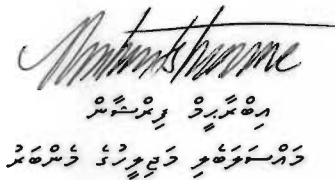 އިބްރާހީމް ފިރްޝާން
މައްސަލަބެލި މަޖިލީހުގެ މެންބަރު